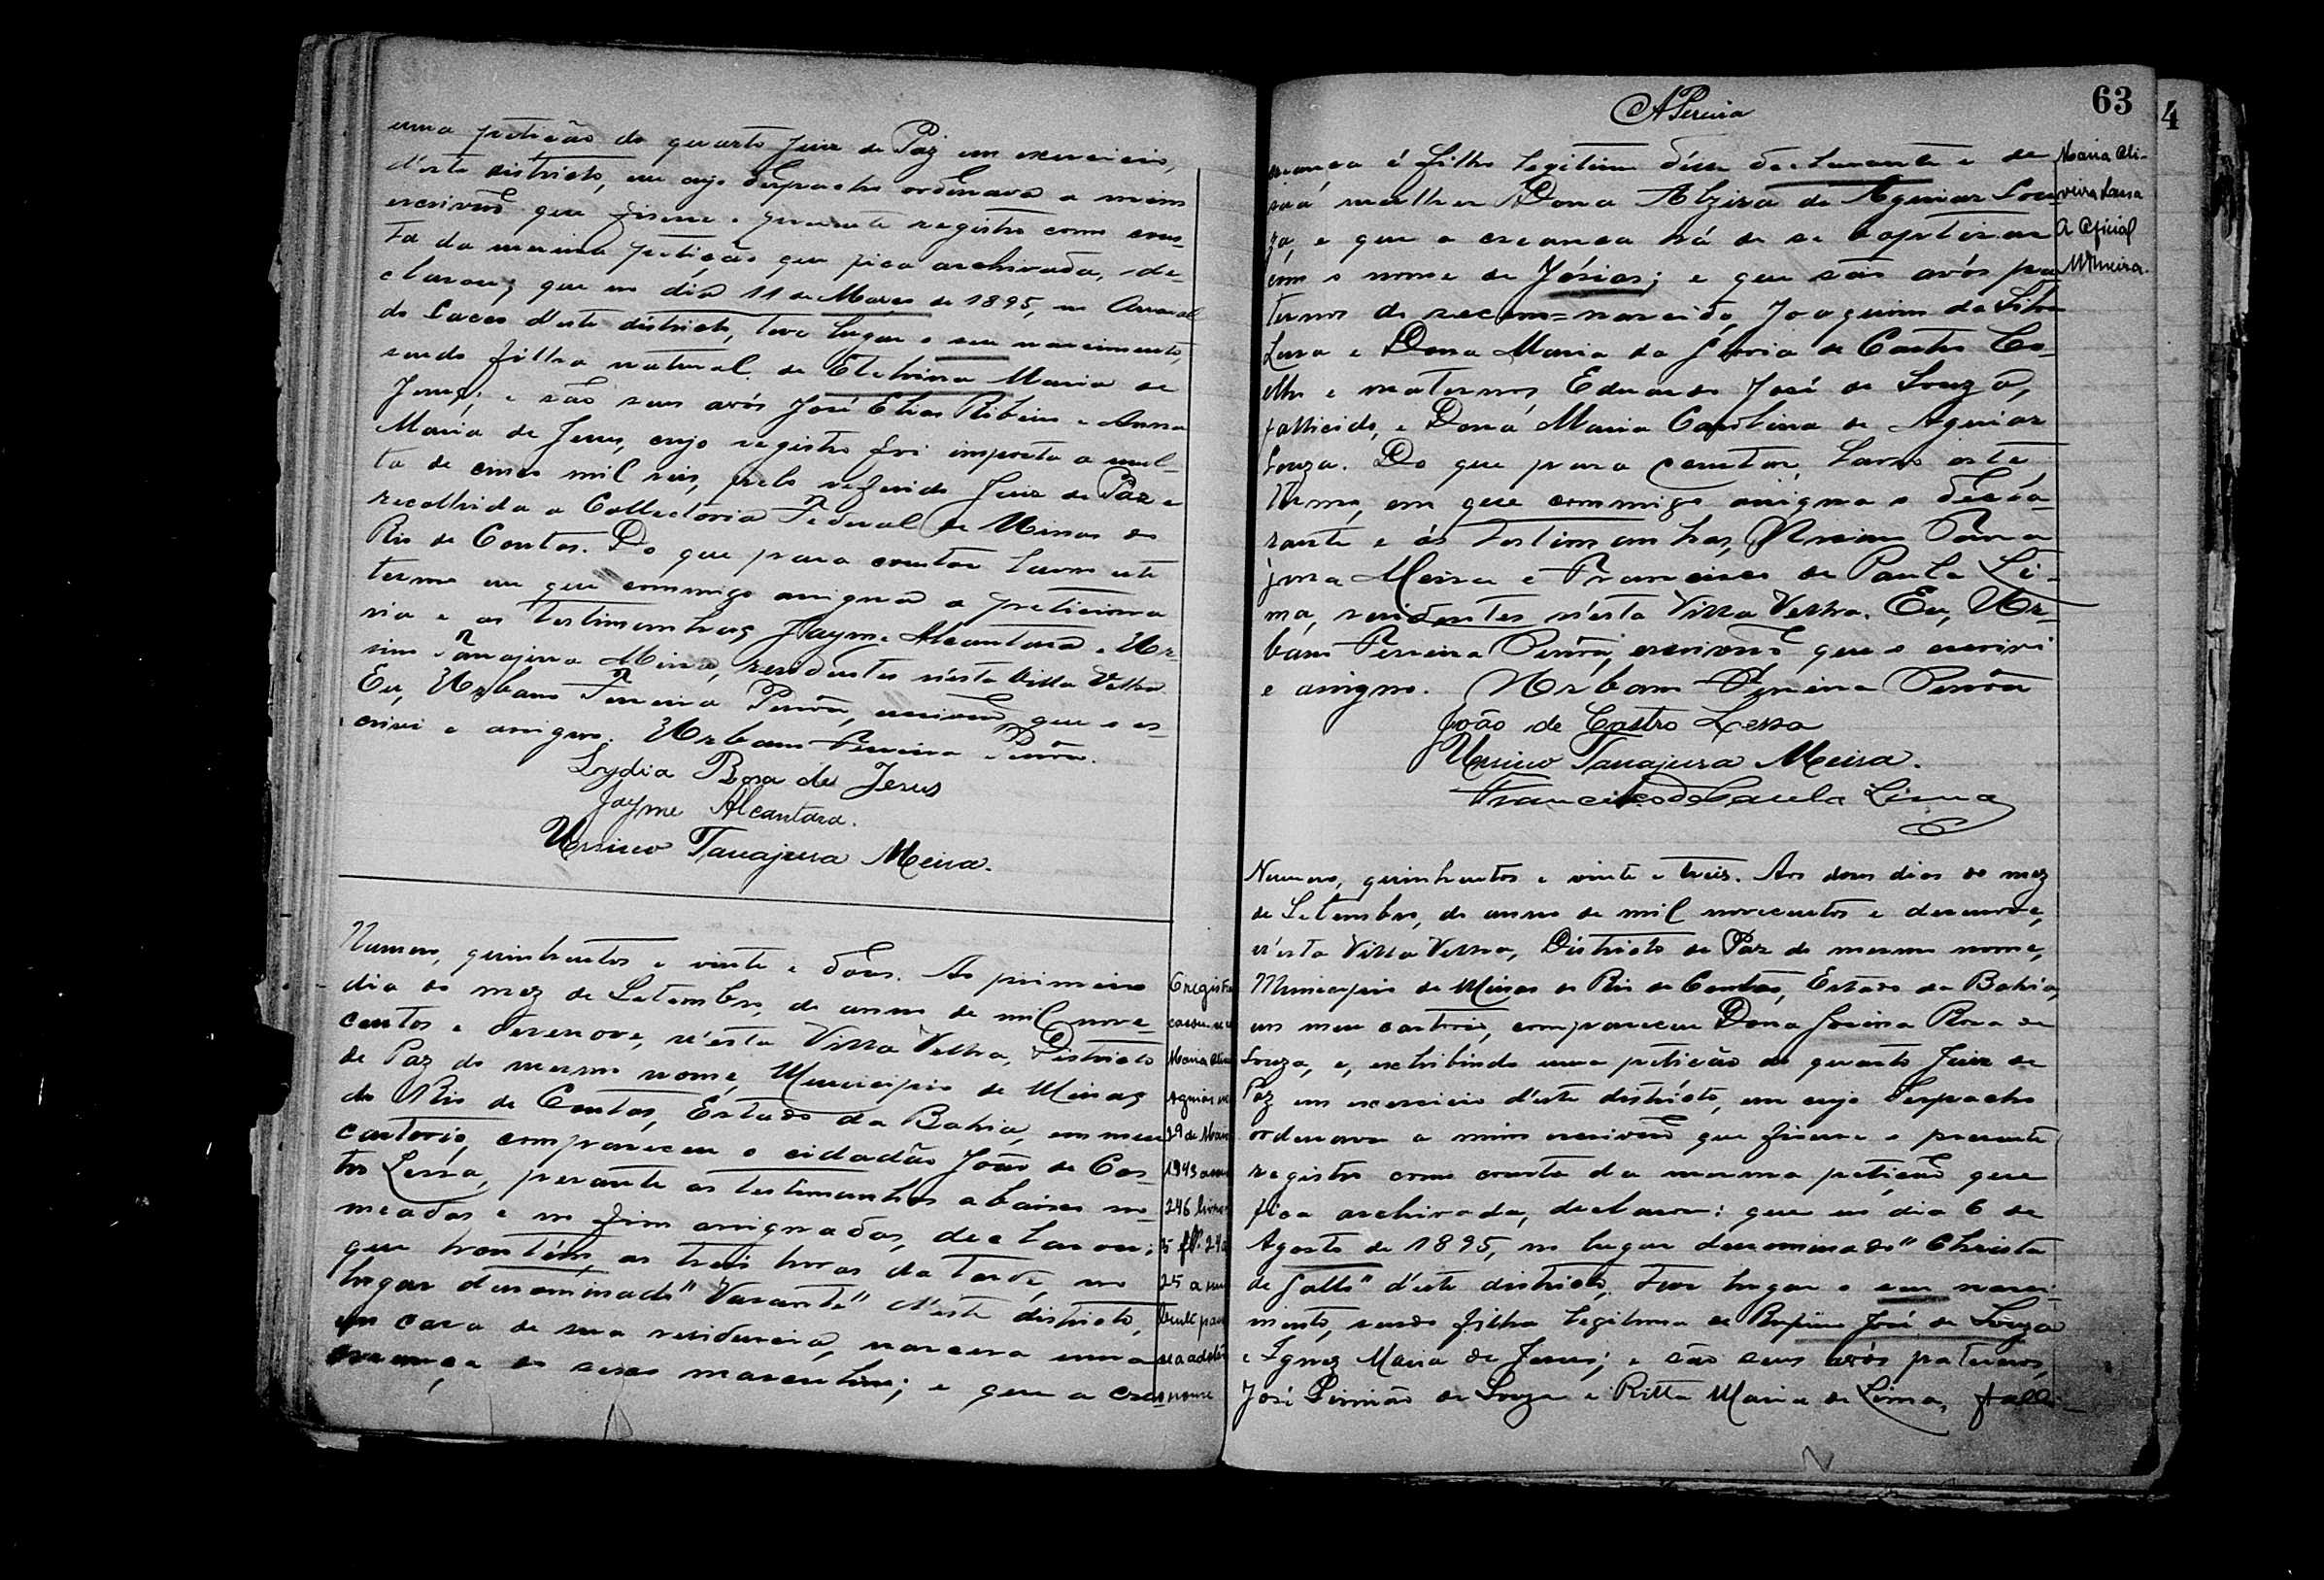 uma petição do quarto Juiz de Paz em exercicio,
d'este districto, em cujo despacho ordenava a mim
escrivão que fizesse o presente registro como cons-
ta da mesma petição que fica archivada, de-
clarou, que no dia 11 de Março de 1895, no Arraial
do d'este districto, teve lugar o seu nascimento,
sendo filha natural de Maria de
Jesus, e são seus avós José Elias Ribeiro e Anna
Maria de Jesus, cujo registro foi imposta a mul-
ta de cinco mil reis, pelo referido Juiz de Paz e
recolhida a Collectoria Federal de Minas do
Rio de Contas. Do que para constar lavro este
termo em que commigo assigna a peticiona-
ria e as testimunhas Jayme Alcantara e Ur-
sino Tanajura Meira, residentes n'esta Villa Velha.
Eu, Urbano Ferreira Penôa, escrivão que o es-
crivi e assigno. Urbano Ferreira Penôa.
Lydia Rosa de Jesus
Jayme Alcantara.
Ursino Tanajura Meira.
Numero, quinhentos e vinte e dous. Ao primeiro
dia do mez de Setembro, do anno de mil nove-
centos e desenove, n'esta Villa Velha, Districto
de Paz do mesmo nome, Municipio de Minas
do Rio de Contas, Estado da Bahia, em meu
cartorio, compareceu o cidadão João de Cas-
tro Lessa, perante as testimunhas abaixo no-
meadas e no fim assignadas, declarou;
que hontém, as treis horas da tarde, no
lugar denominado "Vasante" d'este districto,
em casa de sua residencia, nascera uma
creança do sexo masculino; e que a cre-
O registra
casou-se c
Maria Oliv
Aguiar
29 de Maio
1943
246 livro
5 fls. 24
25 a
nome
APereira
63
4
ança é filho legitimo d'esse declarante e de
sua mulher Dona Alzira de Aguiar Sou-
za, e que a creança há de se baptisar
com o nome de Jósias; e que são avós pa-
ternos do recem-nascido, Joaquim da Silva
Lessa e Dona Maria da Gloria de Castro Co-
elho e maternos Eduardo José de Souza,
fallicido, e Dona Maria Carolina de Aguiar
Souza. Do que para constar, lavro este
termo, em que commigo assigna o décla-
rante e ás testimunhas, Ursino Tana-
jura Meira e Francisco de Paula Li-
ma, residentes n'esta Villa Velha. Eu, Ur-
bano Ferreira Penôa, escrivão que o escrivi
e assigno. Urbano Ferreira Penôa
João de Castro Lessa
Ursino Tanajura Meira.
Francisco de Paula Lima
Maria Oli-
veira Lessa
A Oficial
Numero, quinhentos e vinte e treis. Aos dous dias do mez
de Setembro, do anno de mil novecentos e desenove,
n'esta Villa Velha, Districto de Paz do mesmo nome,
Municipio de Minas do Rio de Contas, Estado da Bahia,
em meu cartorio, compareceu Dona Rosa de
Souza, e, exhibindo uma petição do quarto Juiz de
Paz em exercicio d'este districto, em cujo despacho
ordenava a mim escrivão que fizesse o presente
registro como consta da mesma petição que
fica archivada, declarou: que no dia 6 de
Agosto de 1895, no lugar denominado "Christa
de Gallo" d'este districto, teve lugar o seu nasci-
mento, sendo filha legitima de Rufino José de Souza
e Ignez Maria de Jesus; e são seus avós paternos,
José de Souza e Ritta Maria de Lima, falli-